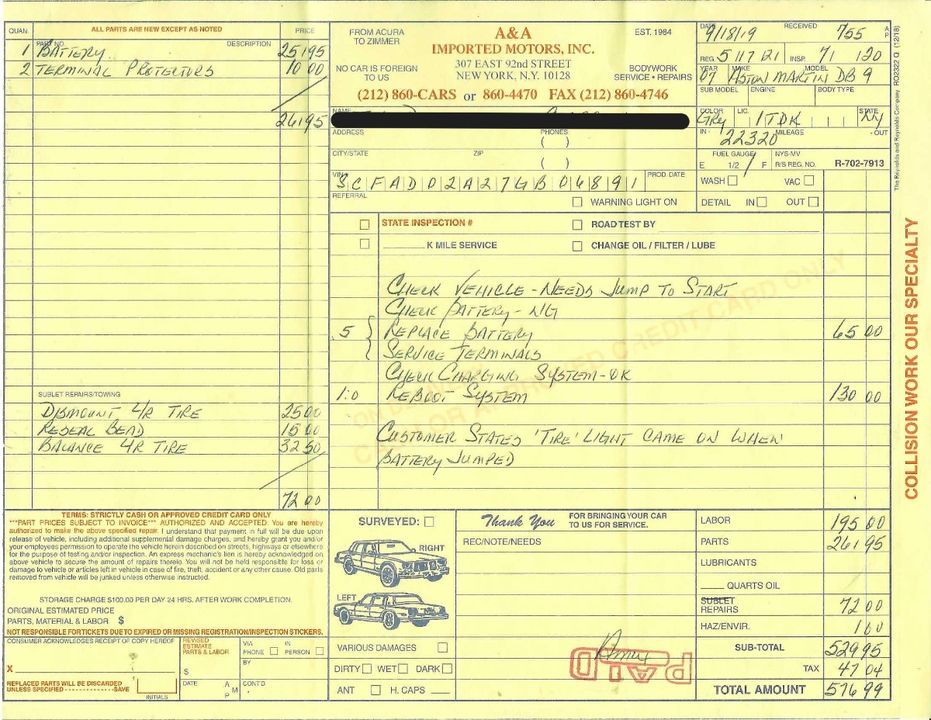 QUAN.
ALL PARTS ARE NEW EXCEPT AS NOTED
PRICE
PART NO.
DESCRIPTION
1 BATTERY 251 95
2 TERMINAL PROTECTORS 10 00
261 95
SUBLET REPAIRS/TOWING
DISMOUNT L/R TIRE 25 00
RESEAL BEAD 15 00
BALANCE L/R TIRE 32 50
72 00
FROM ACURA
TO ZIMMER
NO CAR IS FOREIGN
TO US
A&A
IMPORTED MOTORS, INC.
307 EAST 92nd STREET
NEW YORK, N.Y. 10128
(212) 860-CARS or 860-4470 FAX (212) 860-4746
EST. 1984
BODYWORK
SERVICE • REPAIRS
DATE 9/18/19 RECEIVED 755 A P
REG 5 17 21 INSP. 71 120
YEAR 07 MAKE ASTON MARTIN MODEL DB9
SUB MODEL ENGINE BODY TYPE
COLOR GRY LIC. STATE NY
IN - 22320 MILEAGE - OUT
FUEL GAUGE NYS-MV
E 1/2 F R/S REG. NO. R-702-7913
WASH VAC
DETAIL IN OUT
NAME
ADDRESS PHONES
( )
CITY/STATE ZIP
( )
VIN SCFAD02A27GB06891 PROD. DATE
REFERRAL
WARNING LIGHT ON
STATE INSPECTION # ROAD TEST BY
K MILE SERVICE CHANGE OIL / FILTER / LUBE
CHECK VEHICLE - NEEDS JUMP TO START
CHECK BATTERY - N/G
.5 REPLACE BATTERY 65 00
SERVICE TERMINALS
CHECK CHARGING SYSTEM - OK
1.0 REBOOT SYSTEM 130 00
CUSTOMER STATES 'TIRE' LIGHT CAME ON WHEN
BATTERY JUMPED
TERMS: STRICTLY CASH OR APPROVED CREDIT CARD ONLY
***PART PRICES SUBJECT TO INVOICE*** AUTHORIZED AND ACCEPTED. You are hereby
authorized to make the above specified repair. I understand that payment, in full will be due upon
release of vehicle, including additional supplemental damage charges, and hereby grant you and/or
your employees permission to operate the vehicle herein described on streets, highways or elsewhere
for the purpose of testing and/or inspection. An express mechanic's lien is hereby acknowledged on
above vehicle to secure the amount of repairs thereto. You will not be held responsible for loss or
damage to vehicle or articles left in vehicle in case of fire, theft, accident or any other cause. Old parts
removed from vehicle will be junked unless otherwise instructed.
STORAGE CHARGE $100.00 PER DAY 24 HRS. AFTER WORK COMPLETION.
ORIGINAL ESTIMATED PRICE
PARTS, MATERIAL & LABOR $
NOT RESPONSIBLE FOR TICKETS DUE TO EXPIRED OR MISSING REGISTRATION/INSPECTION STICKERS.
CONSUMER ACKNOWLEDGES RECEIPT OF COPY HEREOF
X
REPLACED PARTS WILL BE DISCARDED
UNLESS SPECIFIED SAVE
INITIALS
REVISED
ESTIMATE
PARTS & LABOR
$
DATE A M P
VIA PHONE IN PERSON
BY
CONT'D
SURVEYED:
RIGHT
LEFT
VARIOUS DAMAGES
DIRTY WET DARK
ANT H. CAPS
Thank You
FOR BRINGING YOUR CAR
TO US FOR SERVICE.
REC/NOTE/NEEDS
PAID
LABOR 195 00
PARTS 261 95
LUBRICANTS
QUARTS OIL
SUBLET
REPAIRS 72 00
HAZ/ENVIR. 1 00
SUB-TOTAL 529 95
TAX 47 04
TOTAL AMOUNT 576 99
COLLISION WORK OUR SPECIALTY
The Reynolds and Reynolds Company RO2322 Q (12/18)